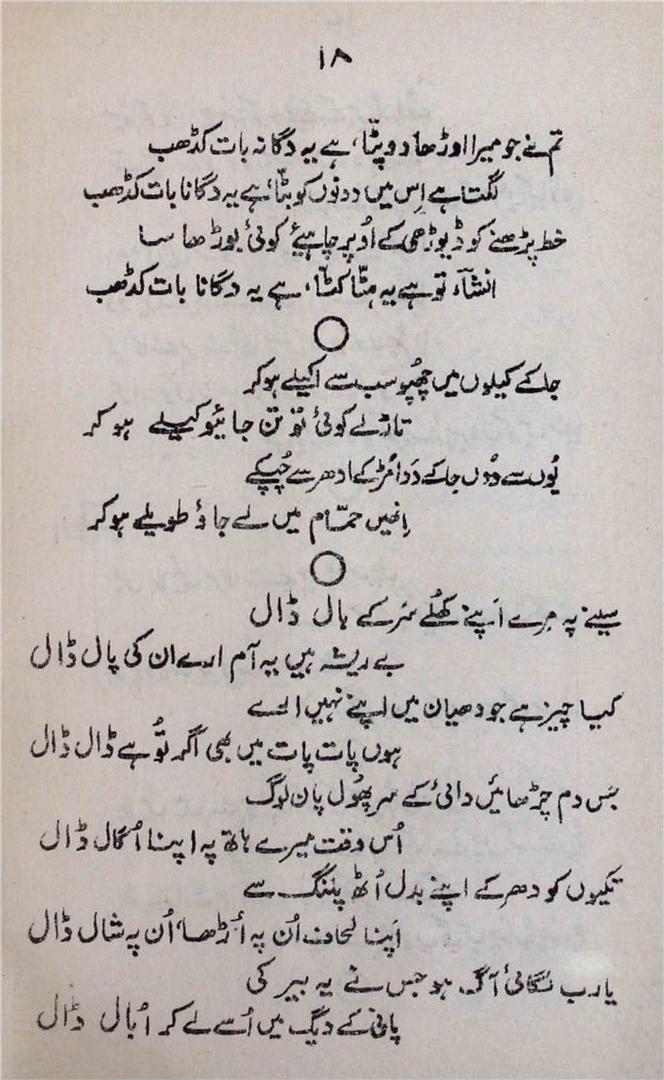 ۱۸
تم نے جو میرا اوڑھا دوپٹّا، ہے یہ دگانہ بات کڈھب
لگتا ہے اِس میں دونوں کو بٹّا، ہے یہ دگانا بات کڈھب
خط پڑھنے کو ڈیوڑھی کے اُوپر چاہیئے کوئی بوڑھا سا
انشآء تو ہے یہ ہٹّا کٹّا، ہے یہ دگانا بات کڈھب
جا کے کیلوں میں چھپو سب سے اکیلے ہو کر
تاڑ لے کوئی تو تن جائیو کیلے ہو کر
یُوں سے دُوں جا کے دَدا مُڑ کے ادھر سے چُپکے
اِنھیں حمّام میں لے جاؤ طویلے ہو کر
سینے پہ مرے اَپنے کھُلے سَر کے بال ڈال
بے ریشہ ہیں یہ آم ارے ان کی پال ڈال
کیا چیز ہے جو دھیان میں اپنے نہیں اسے
ہوں پات پات میں بھی اگر تُو ہے ڈال ڈال
بَس دم چڑھائیں دائی کے سر پھُول پان لوگ
اُس وقت میرے ہاتھ پہ اپنا اُگال ڈال
تکیوں کو دھر کے اپنے بدل اُٹھ پلنگ سے
اَپنا لحاف اُن پہ اُڑھا، اُن پہ شال ڈال
یارب لگائی آگ ہو جس نے یہ بیر کی
پانی کے دیگ میں اُسے لے کر اُبال ڈال